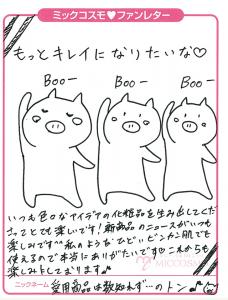 ミックコスモ♥ファンレター
もっとキレイになりたいな♡
Booー Booー Booー
いつも色々なアイデアの化粧品を生み出してくだ
さってとても楽しいです！新商品のニュースがいつも
楽しみです^^私のようなひどいビンカン肌でも
使えるので本当にありがたいです♡これからも
楽しみにしております♪
MICCOSMO
ニックネーム 愛用商品は数知れず…のトン♪